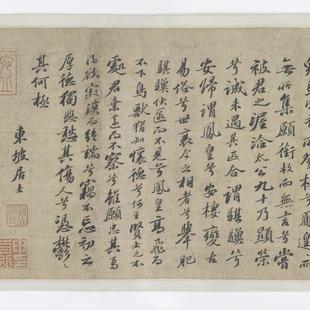 無所集願銜枚而無言兮嘗
被君之渥洽太公九十乃顯榮
兮誠未遇其匹合謂騏驥兮
安歸謂鳳皇兮安棲變古
易俗兮世衰今之相者兮舉肥
騏驥伏匿而不見兮鳳皇高飛而
不下鳥獸猶知懷德兮何云賢士之不
處君棄遠而不察兮雖願忠其焉
得欲寂漠而絕端兮竊不忘初之
厚德獨悲愁其傷人兮馮鬱鬱
其何極
東坡居士